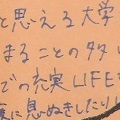 と思える大学
まることの多い
での充実LIFEを
夏に息ぬきしたり